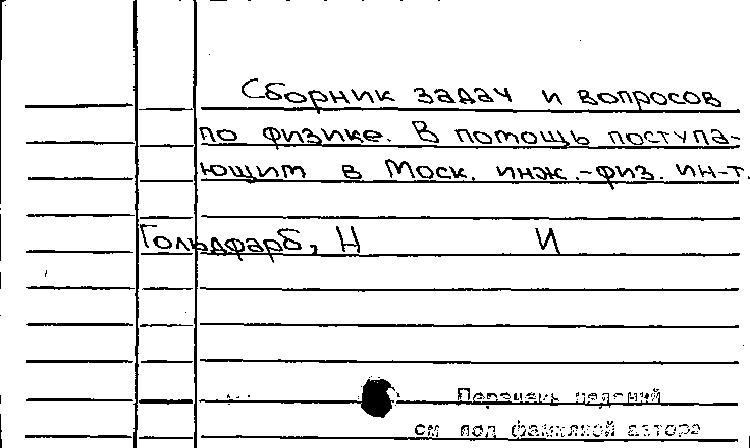 Сборник задач и вопросов
по физике. В помощь поступа-
ющим в Моск. инж.-физ. ин-т.
Гольдфарб, Н И
Перечень изданий
см под фамилией автора